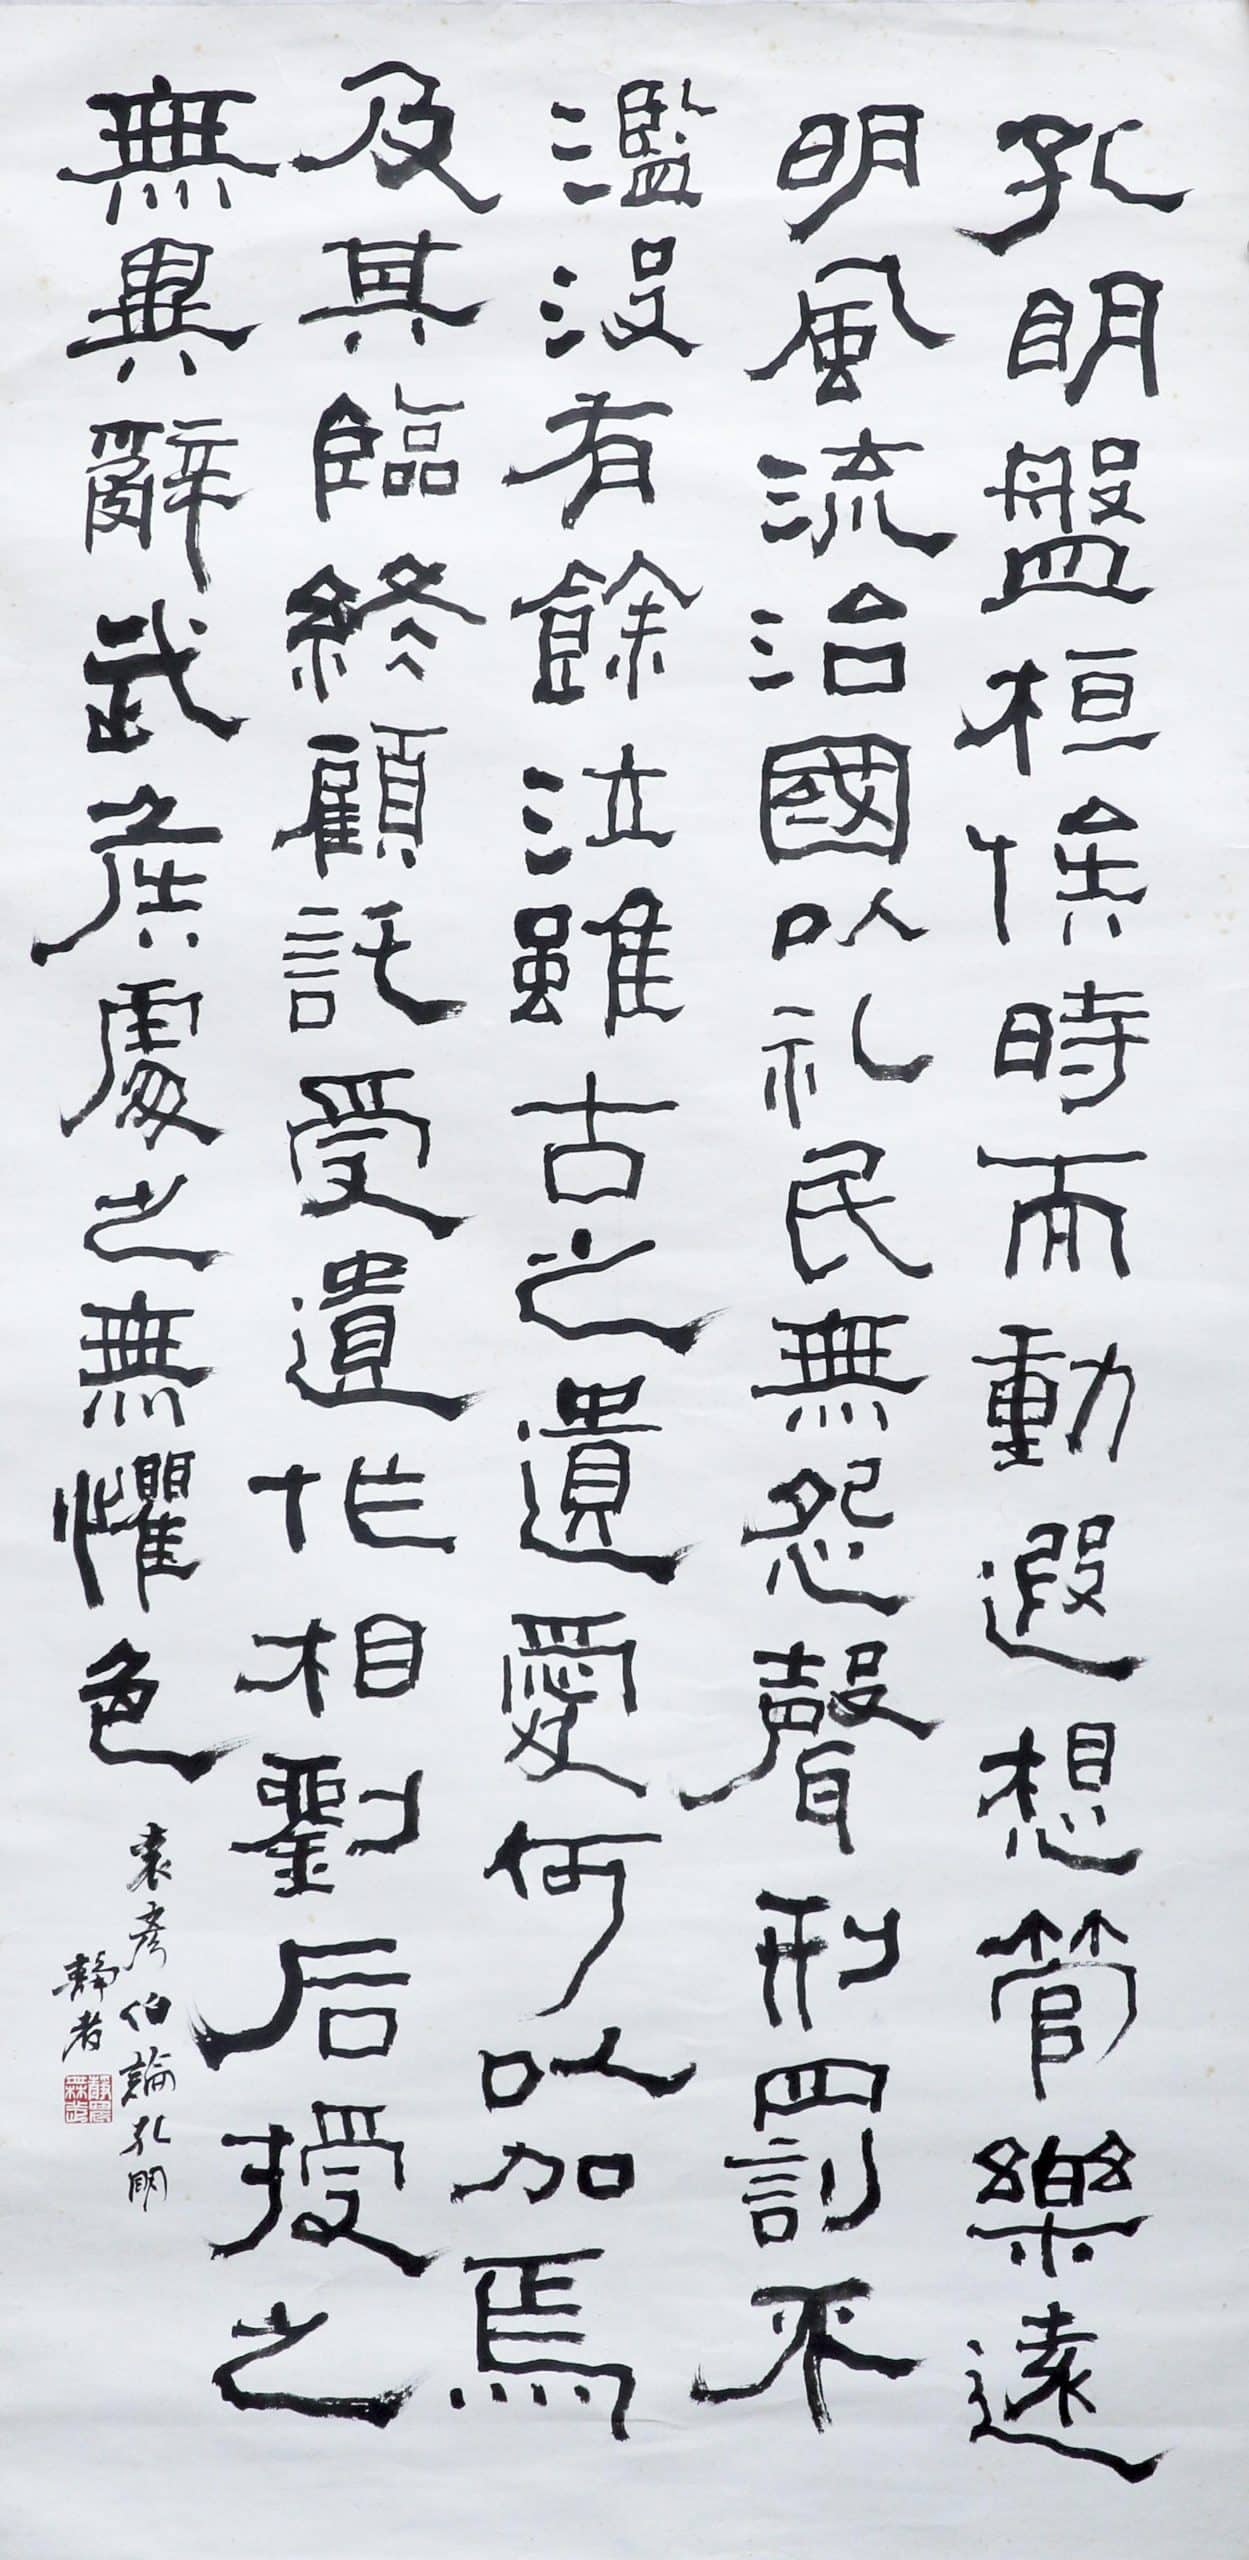 孔明盤桓俟時而動遐想管樂遠
明風流治國以礼民無怨聲刑罰不
濫沒有餘泣雖古之遺愛何以加焉
及其臨終顧託受遺作相劉后授之
無異辭武侯處之無懼色
袁彥伯論孔明
靜者